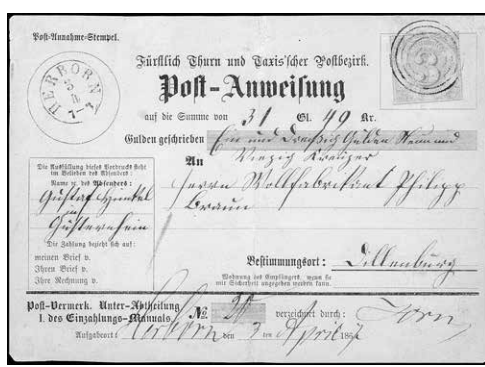 Post-Annahme-Stempel.
HERBORN
3
4
7-8
Fürstlich Thurn und Taxis'scher Postbezirk.
Post-Anweisung
auf die Summe von 31 Gl. 49 Kr.
Gulden geschrieben Ein und Dreißig Gulden Neun und
Vierzig Kreuzer
An
Herrn Wollfabrikant Philipp
Braun
Die Ausfüllung dieses Vordrucks steht
im Belieben des Absenders:
Name rc. des Absenders:
Gustaf
in
Gusternhain
Die Zahlung bezieht sich auf:
meinen Brief v.
Ihren Brief v.
Ihre Rechnung v.
Bestimmungsort: Dillenburg
Wohnung des Empfängers, wenn sie
mit Sicherheit angegeben werden kann.
Post-Vermerk. Unter-Abtheilung
I. des Einzahlungs-Manuals. № 20 verzeichnet durch:
Aufgabeort: Herborn den 3 ten April 1867